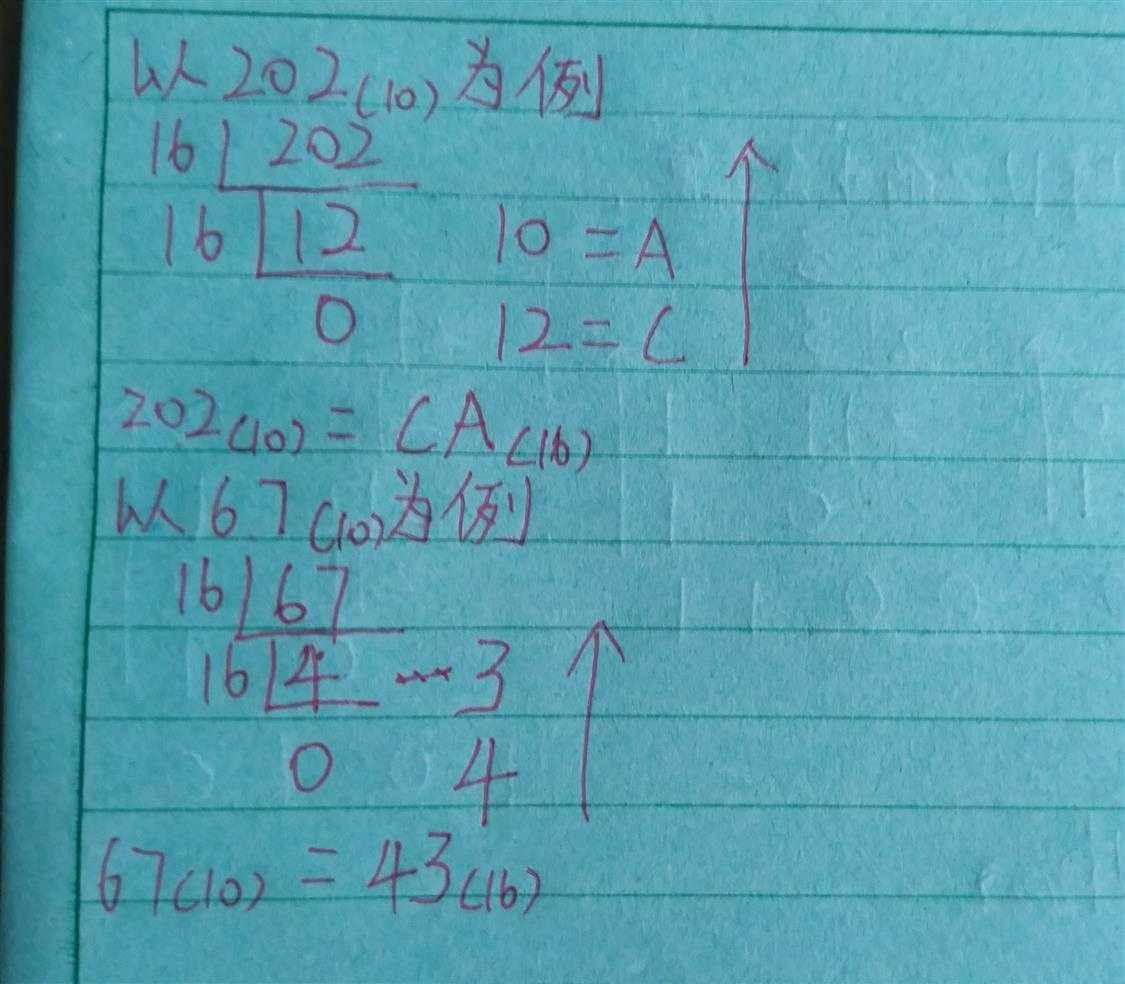 以202(10)为例
16 202
16 12 10=A
0 12=C
202(10)=CA(16)
以67(10)为例
16 67
16 4 ···3
0 4
67(10)=43(16)